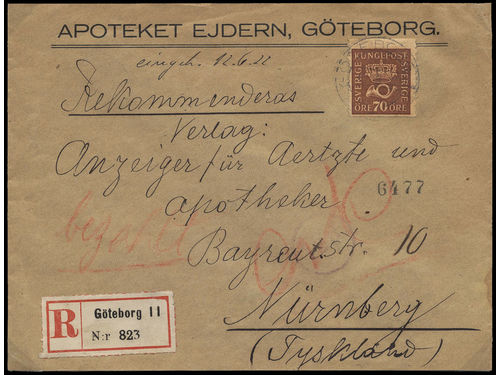 APOTEKET EJDERN, GÖTEBORG.
eingeh. 12.6.22
Rekommenderas
KUNGL POST
SVERIGE
SVERIGE
ÖRE 70 ÖRE
Verlag:
Anzeiger für Aertzte und
Apotheker
6477
bezahlt
Bayreut. str. 10
Nürnberg
(Tyskland)
R
Göteborg 11
N:r 823